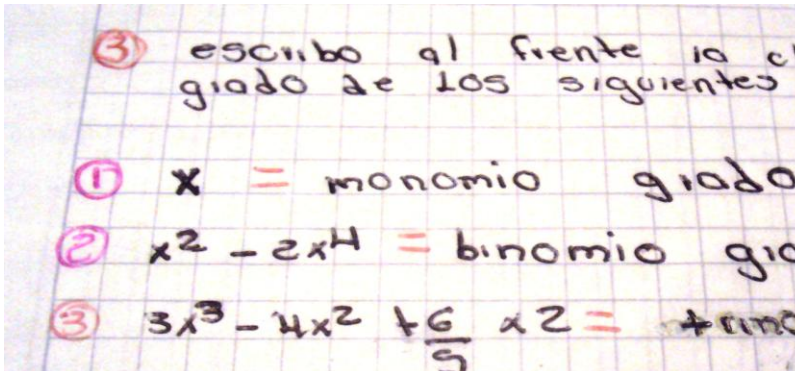 ③ escribo al frente la cl
grado de los siguientes
① x = monomio grado
② x² - 2x⁴ = binomio gra
③ 3x³ - 4x² + 6/5 x2 = trino